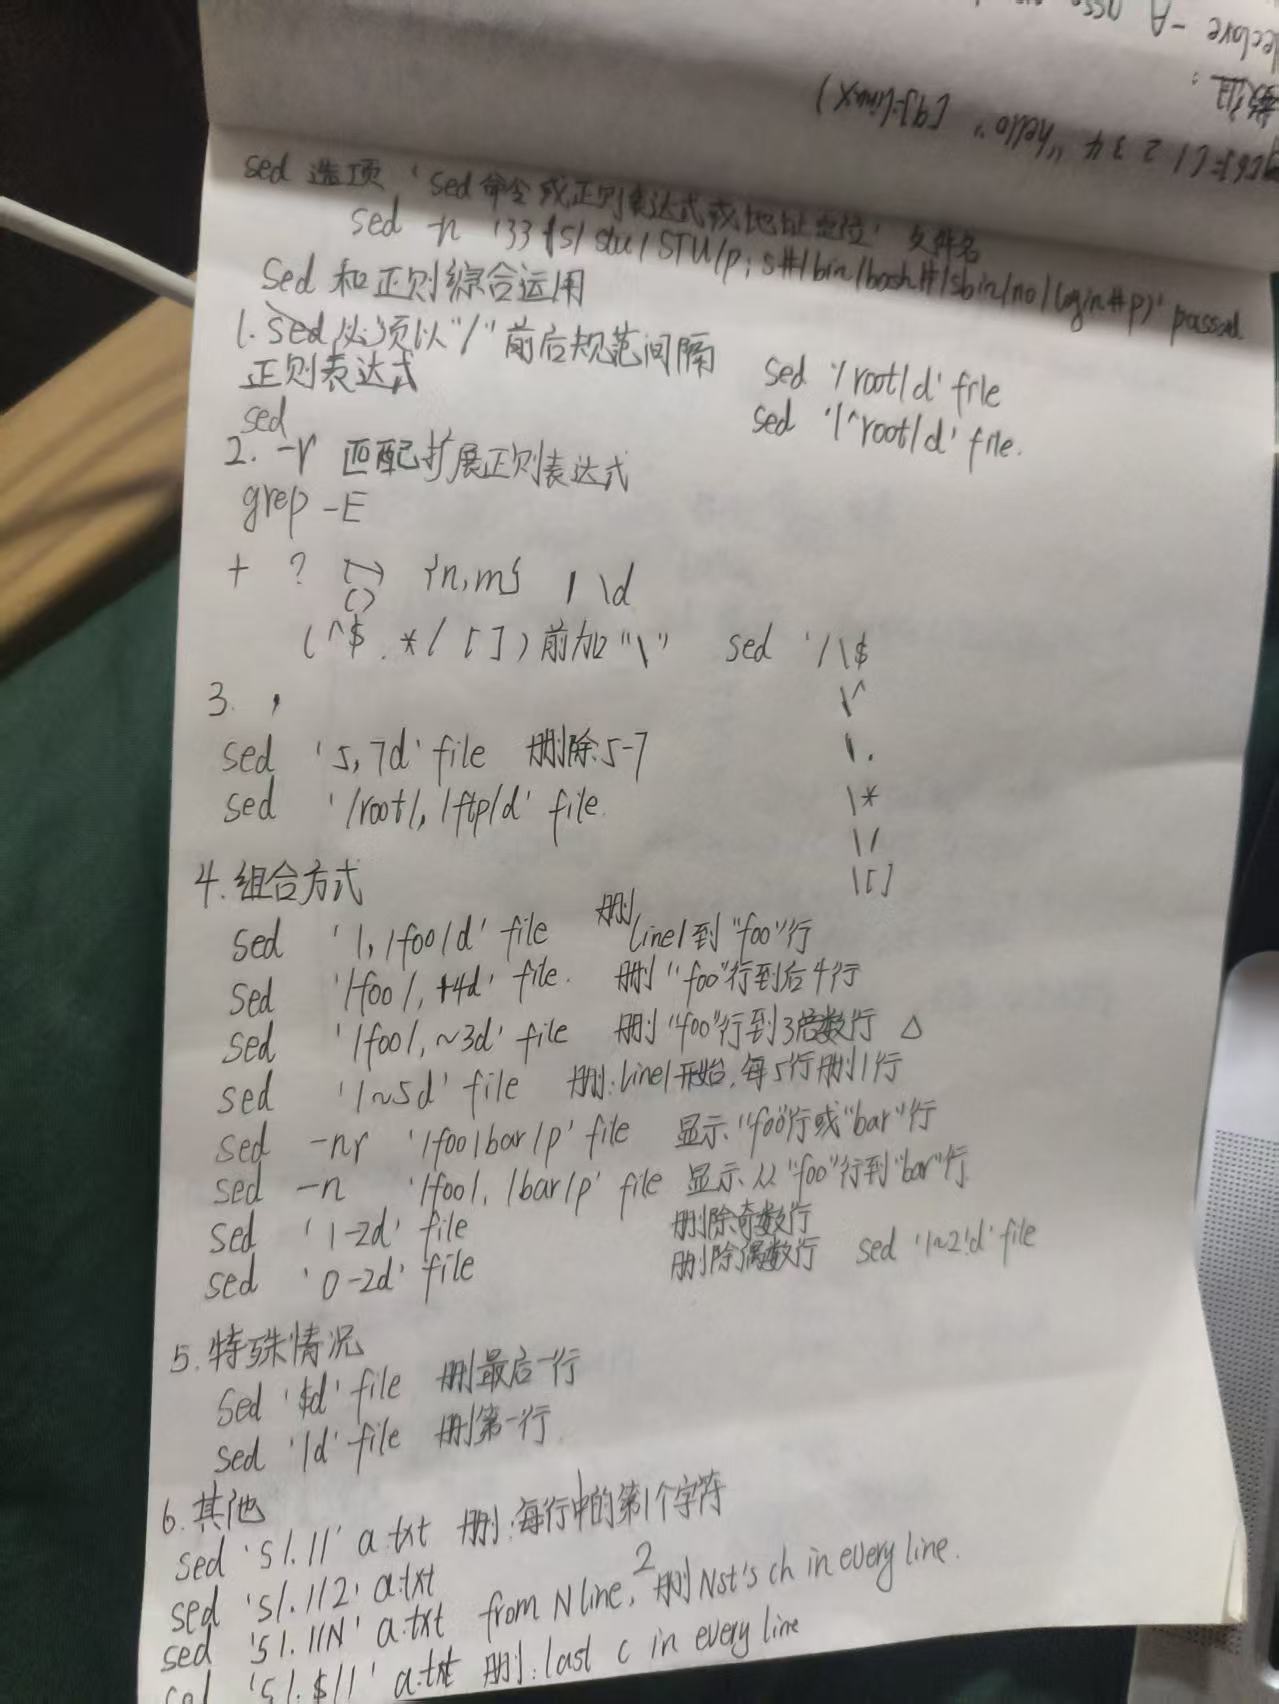 declare -A
数组:
2 3 4 "hello" [9]=linux)
sed 选项 'sed命令或正则表达式或地址定位' 文件名
sed -n '33{s/stu/STU/p;s#/bin/bash#/sbin/nologin#p}' passwd
sed和正则综合运用
1. sed必须以"/"前后规范间隔
正则表达式
sed '/root/d' file
sed '/^root/d' file.
sed
2. -r 匹配扩展正则表达式
grep -E
+ ? () {n,m} | \d
(^$.*/[])前加"\" sed '/\$
\^
\.
\*
\/
\[]
3. ,
sed '5,7d' file 删除5-7
sed '/root/,/ftp/d' file.
4.组合方式
sed '1,/foo/d' file 删line1到"foo"行
sed '/foo/,+4d' file. 删"foo"行到后4行
sed '/foo/,~3d' file 删"foo"行到3倍数行 △
sed '1~5d' file 删:line1开始,每5行删1行
sed -nr '/foo|bar/p' file 显示"foo"行或"bar"行
sed -n '/foo/,/bar/p' file 显示从"foo"行到"bar"行
sed '1~2d' file 删除奇数行
sed '0~2d' file 删除偶数行 sed '1~2!d' file
5.特殊情况
sed '$d' file 删最后一行
sed '1d' file 删第一行
6.其他
sed 's/.//' a.txt 删:每行中的第1个字符
sed 's/.//2' a.txt 2
sed 's/.//N' a.txt from N line, 删Nst's ch in every line.
's/.$//' a.txt 删:last c in every line